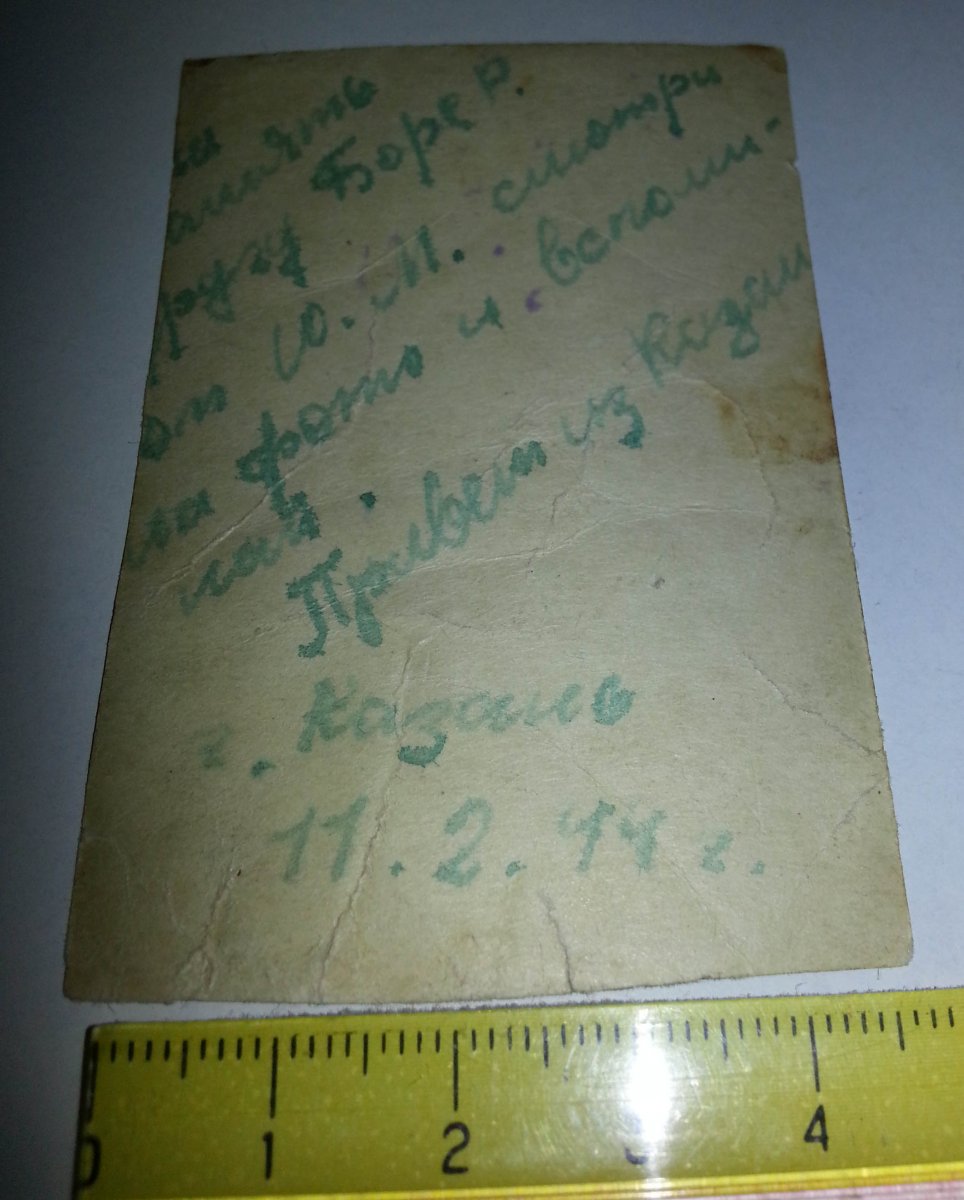 на
амять
ругу Боре Р.
от Ю.М. смотри
на фото и вспоми-
най.
Привет из Казани
г. Казань
11.2.44 г.
0 1 2 3 4